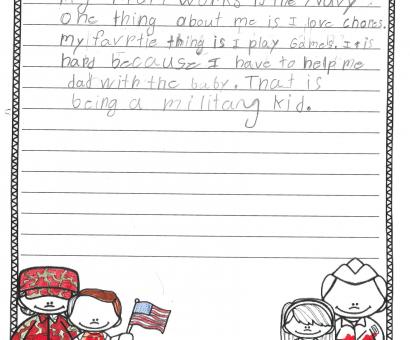 My mom works is the Navy.
one thing about me is I love chores.
my favrtie thing is I play Games. It is
hard because I have to help me
dad with the baby. That is
being a military kid.